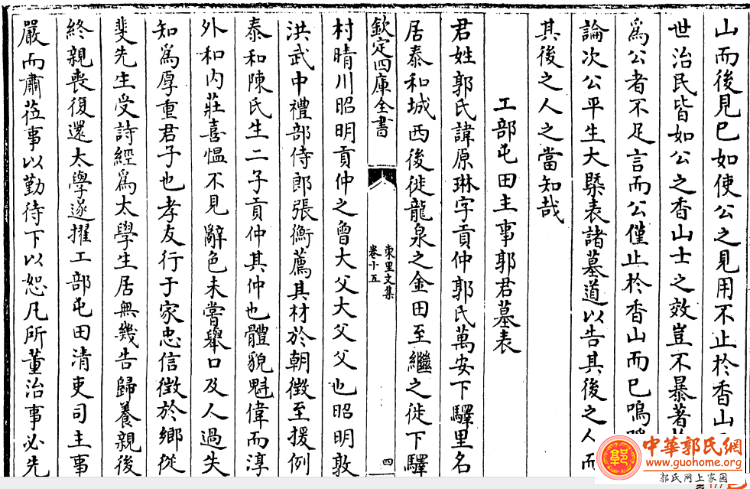 山而後見已如使公之見用不止於香山
世治民皆如公之香山士之效豈不暴著
為公者不足言而公僅止於香山而已嗚
論次公平生大槩表諸墓道以告其後之人而
其後之人之當知哉
工部屯田主事郭君墓表
君姓郭氏諱原琳字貢仲郭氏萬安下驛里名
居泰和城西後徙龍泉之金田至繼之徙下驛
欽定四庫全書
東里文集
卷十五
四
村晴川昭明貢仲之曾大父大父父也昭明敦
洪武中禮部侍郎張衡薦其材於朝徵至援例
泰和陳氏生二子貢仲其仲也體貌魁偉而淳
外和内莊喜愠不見辭色未嘗舉口及人過失
知為厚重君子也孝友行于家忠信徵於鄉從
斐先生受詩經為太學生居無幾告歸養親後
終親喪復還太學遂擢工部屯田清吏司主事
嚴而肅莅事以勤待下以恕凡所董治事必先
中華郭氏網
www.guohome.org
郭氏网上家园